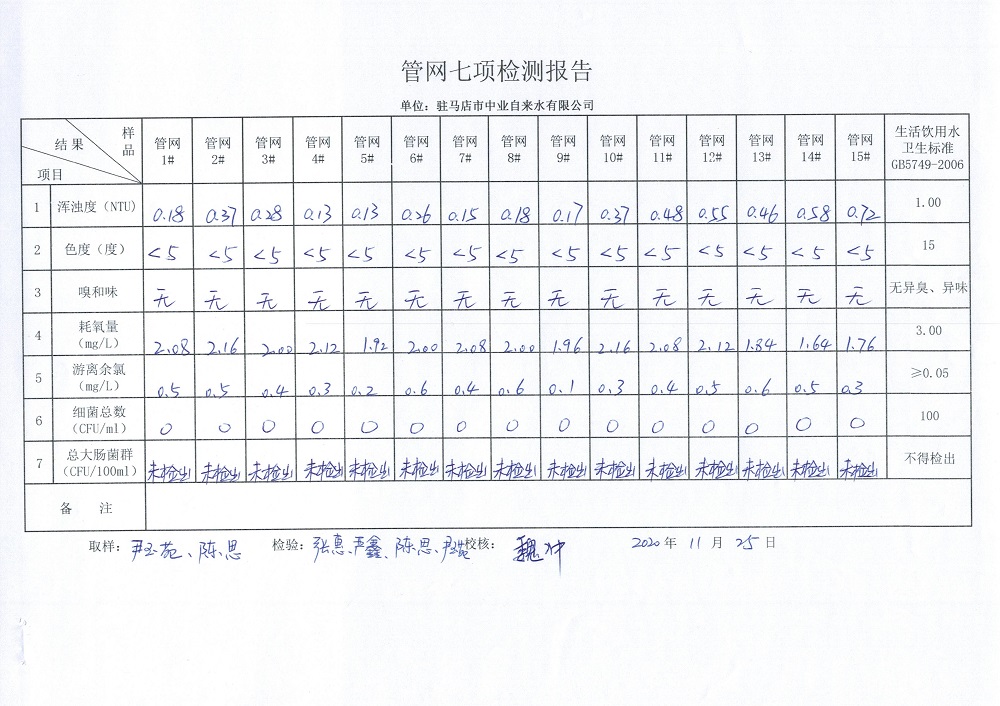 管网七项检测报告
单位：驻马店市中业自来水有限公司
结果 样品 项目 管网1# 管网2# 管网3# 管网4# 管网5# 管网6# 管网7# 管网8# 管网9# 管网10# 管网11# 管网12# 管网13# 管网14# 管网15# 生活饮用水卫生标准GB5749-2006
1 浑浊度（NTU） 0.18 0.37 0.28 0.13 0.13 0.26 0.15 0.18 0.17 0.37 0.48 0.55 0.46 0.58 0.72 1.00
2 色度（度） <5 <5 <5 <5 <5 <5 <5 <5 <5 <5 <5 <5 <5 <5 <5 15
3 嗅和味 无 无 无 无 无 无 无 无 无 无 无 无 无 无 无 无异臭、异味
4 耗氧量（mg/L） 2.08 2.16 2.00 2.12 1.92 2.00 2.08 2.00 1.96 2.16 2.08 2.12 1.84 1.64 1.76 3.00
5 游离余氯（mg/L） 0.5 0.5 0.4 0.3 0.2 0.6 0.4 0.6 0.1 0.3 0.4 0.5 0.6 0.5 0.3 ≥0.05
6 细菌总数（CFU/ml） 0 0 0 0 0 0 0 0 0 0 0 0 0 0 0 100
7 总大肠菌群（CFU/100ml） 未检出 未检出 未检出 未检出 未检出 未检出 未检出 未检出 未检出 未检出 未检出 未检出 未检出 未检出 未检出 不得检出
备 注
取样：尹玉苑、陈思 检验：张惠、严鑫、陈思、 校核：魏冲 2020年11月25日